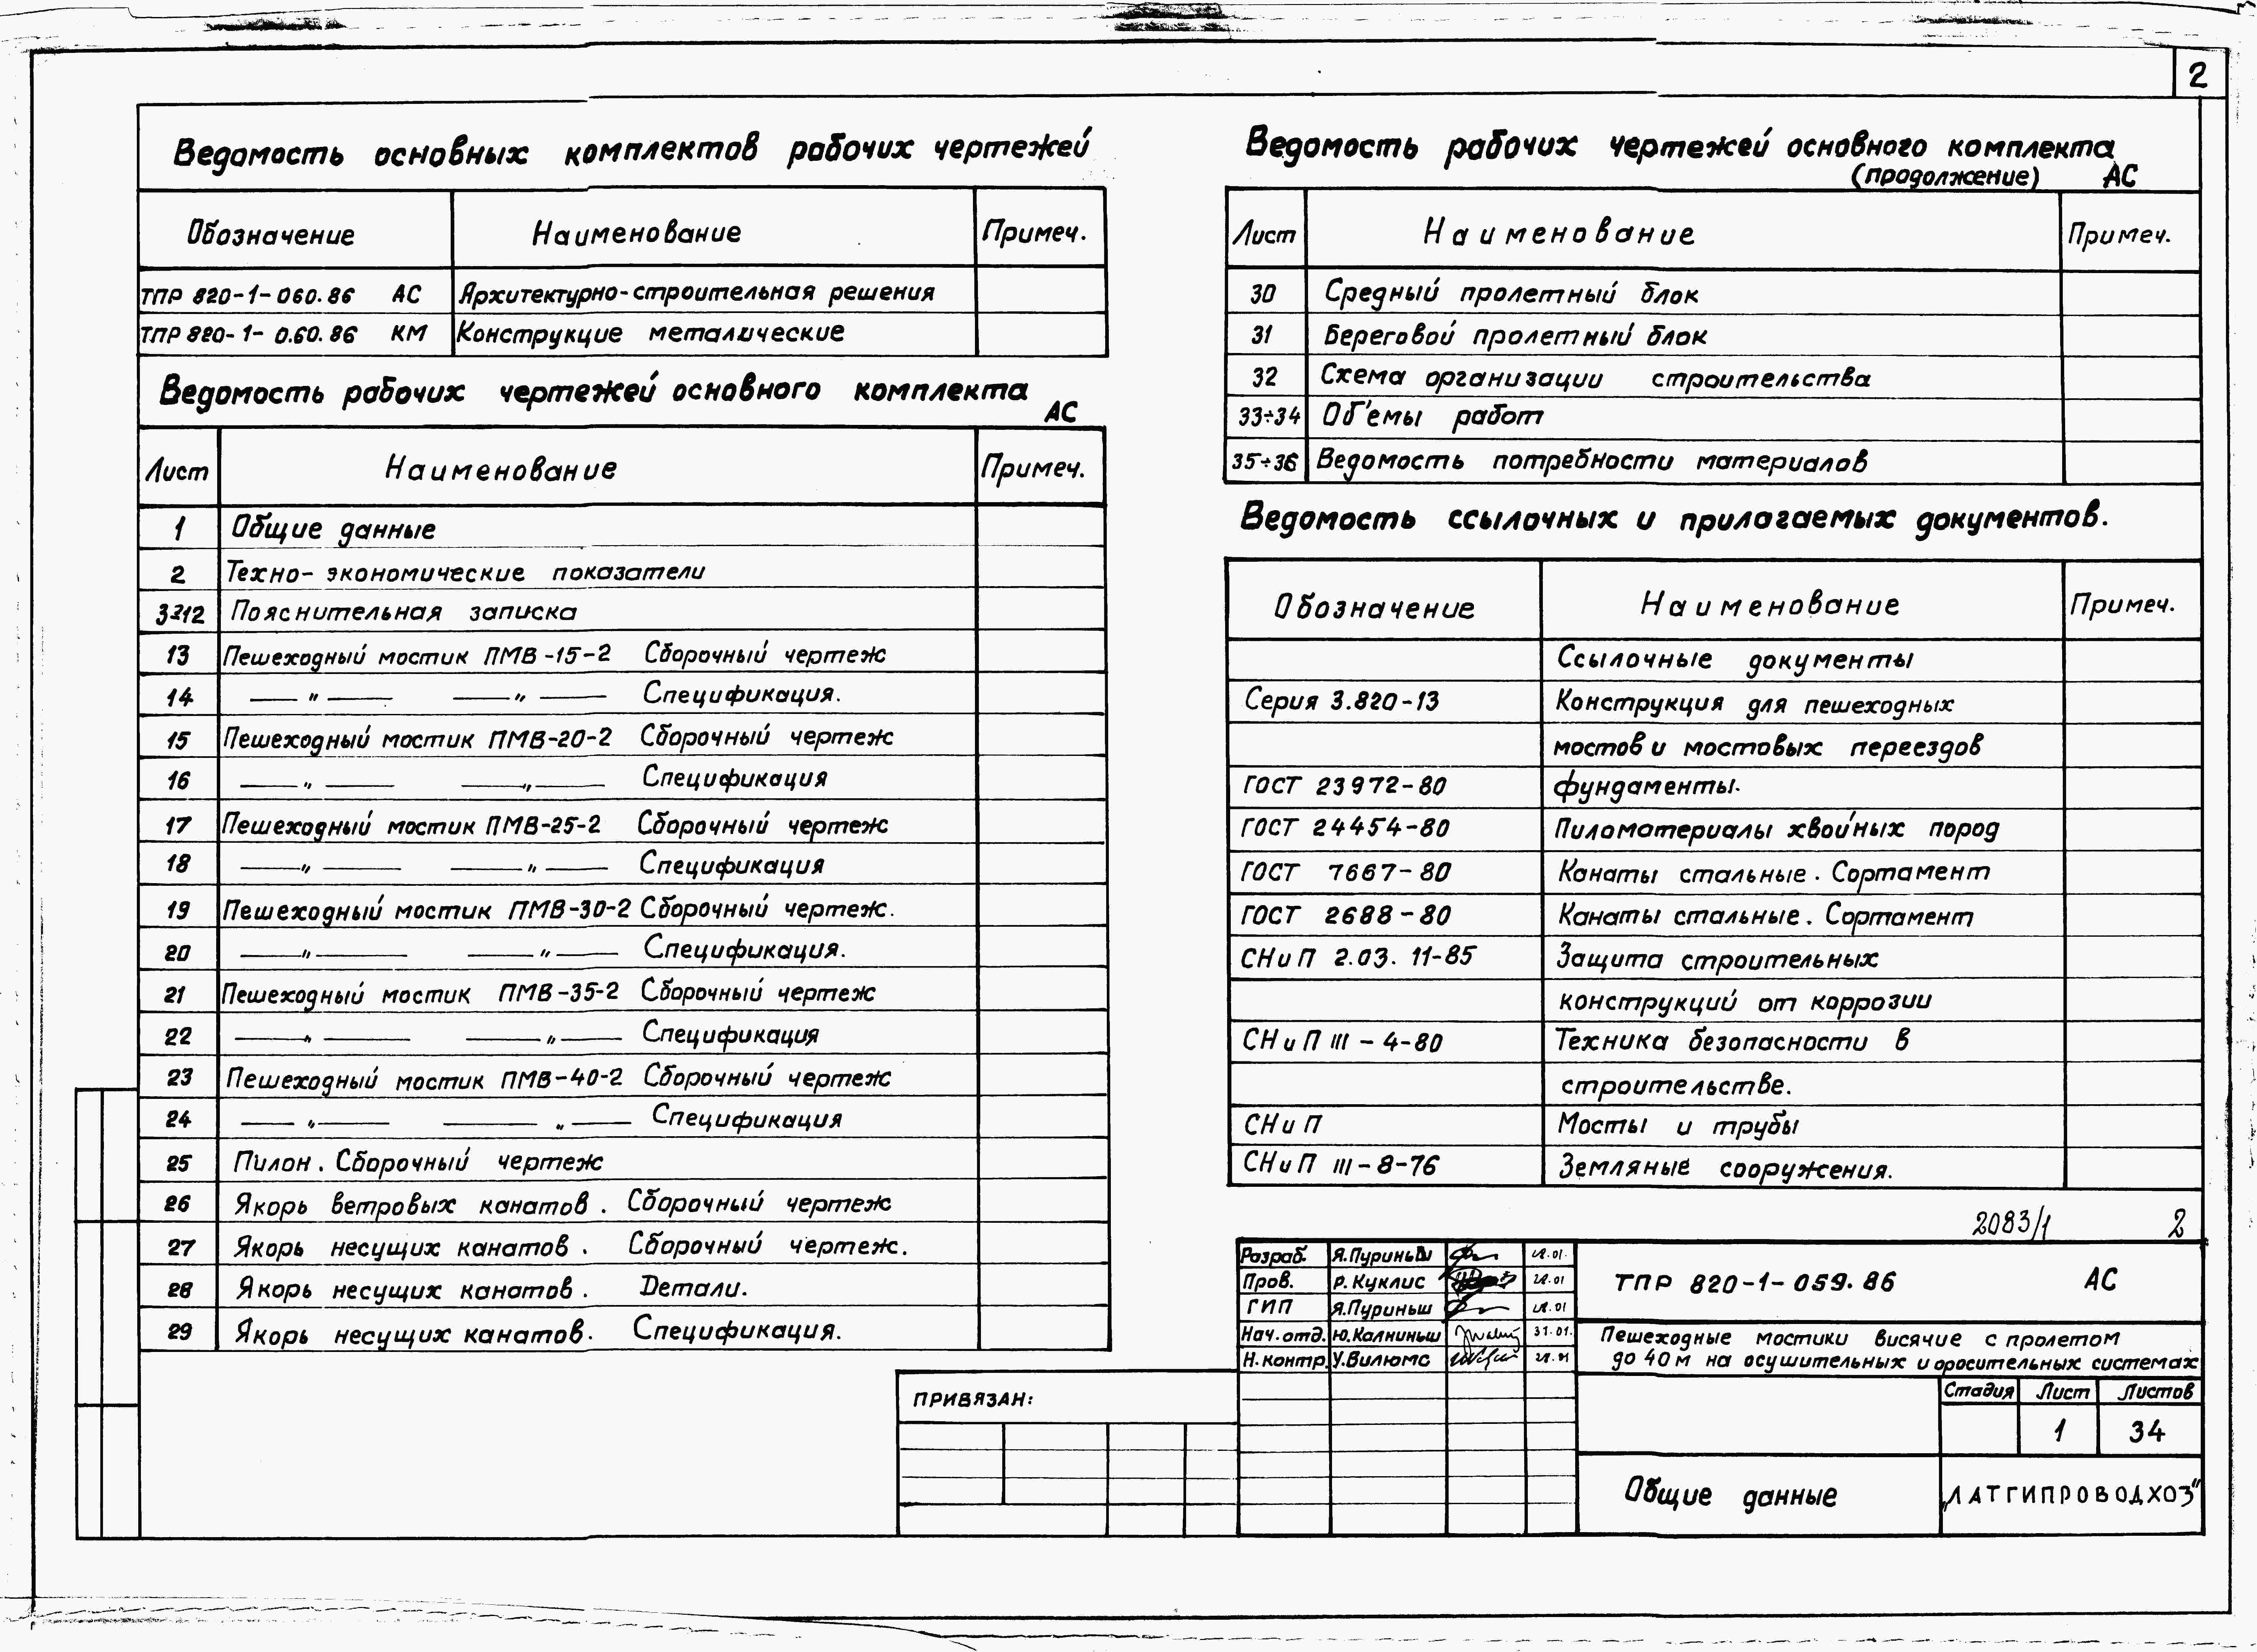 2
Ведомость основных комплектов рабочих чертежей
Обозначение Наименование Примеч.
ТПР 820-1-060.86 АС Архитектурно-строительная решения
ТПР 820-1-0.60.86 КМ Конструкцие металические
Ведомость рабочих чертежей основного комплекта
АС
Лист Наименование Примеч.
1 Общие данные
2 Техно-экономические показатели
3÷12 Пояснительная записка
13 Пешеходный мостик ПМВ-15-2 Сборочный чертеж
14 — " — — " — Спецификация.
15 Пешеходный мостик ПМВ-20-2 Сборочный чертеж
16 — " — — " — Спецификация
17 Пешеходный мостик ПМВ-25-2 Сборочный чертеж
18 — " — — " — Спецификация
19 Пешеходный мостик ПМВ-30-2 Сборочный чертеж.
20 — " — — " — Спецификация.
21 Пешеходный мостик ПМВ-35-2 Сборочный чертеж
22 — " — — " — Спецификация
23 Пешеходный мостик ПМВ-40-2 Сборочный чертеж
24 — " — — " — Спецификация
25 Пилон. Сборочный чертеж
26 Якорь ветровых канатов. Сборочный чертеж
27 Якорь несущих канатов. Сборочный чертеж.
28 Якорь несущих канатов. Детали.
29 Якорь несущих канатов. Спецификация.
Ведомость рабочих чертежей основного комплекта
(продолжение) АС
Лист Наименование Примеч.
30 Средный пролетный блок
31 Береговой пролетный блок
32 Схема организации строительства
33÷34 Об'емы работ
35÷36 Ведомость потребности материалов
Ведомость ссылочных и прилагаемых документов.
Обозначение Наименование Примеч.
Ссылочные документы
Серия 3.820-13 Конструкция для пешеходных
мостов и мостовых переездов
ГОСТ 23972-80 фундаменты.
ГОСТ 24454-80 Пиломатериалы хвойных пород
ГОСТ 7667-80 Канаты стальные. Сортамент
ГОСТ 2688-80 Канаты стальные. Сортамент
СНиП 2.03.11-85 Защита строительных
конструкций от коррозии
СНиП III-4-80 Техника безопасности в
строительстве.
СНиП Мосты и трубы
СНиП III-8-76 Земляные сооружения.
2083/1 2
Разраб. Я.Пуриньш 28.01.
Пров. Р.Куклис 28.01
ГИП Я.Пуриньш 28.01
Нач.отд. Ю.Калниньш 31.01.
Н.контр. У.Вилюмс
ТПР 820-1-059.86 АС
Пешеходные мостики висячие с пролетом
до 40м на осушительных и оросительных системах
Стадия Лист Листов
1 34
Общие данные
„ЛАТГИПРОВОДХОЗ"
ПРИВЯЗАН: